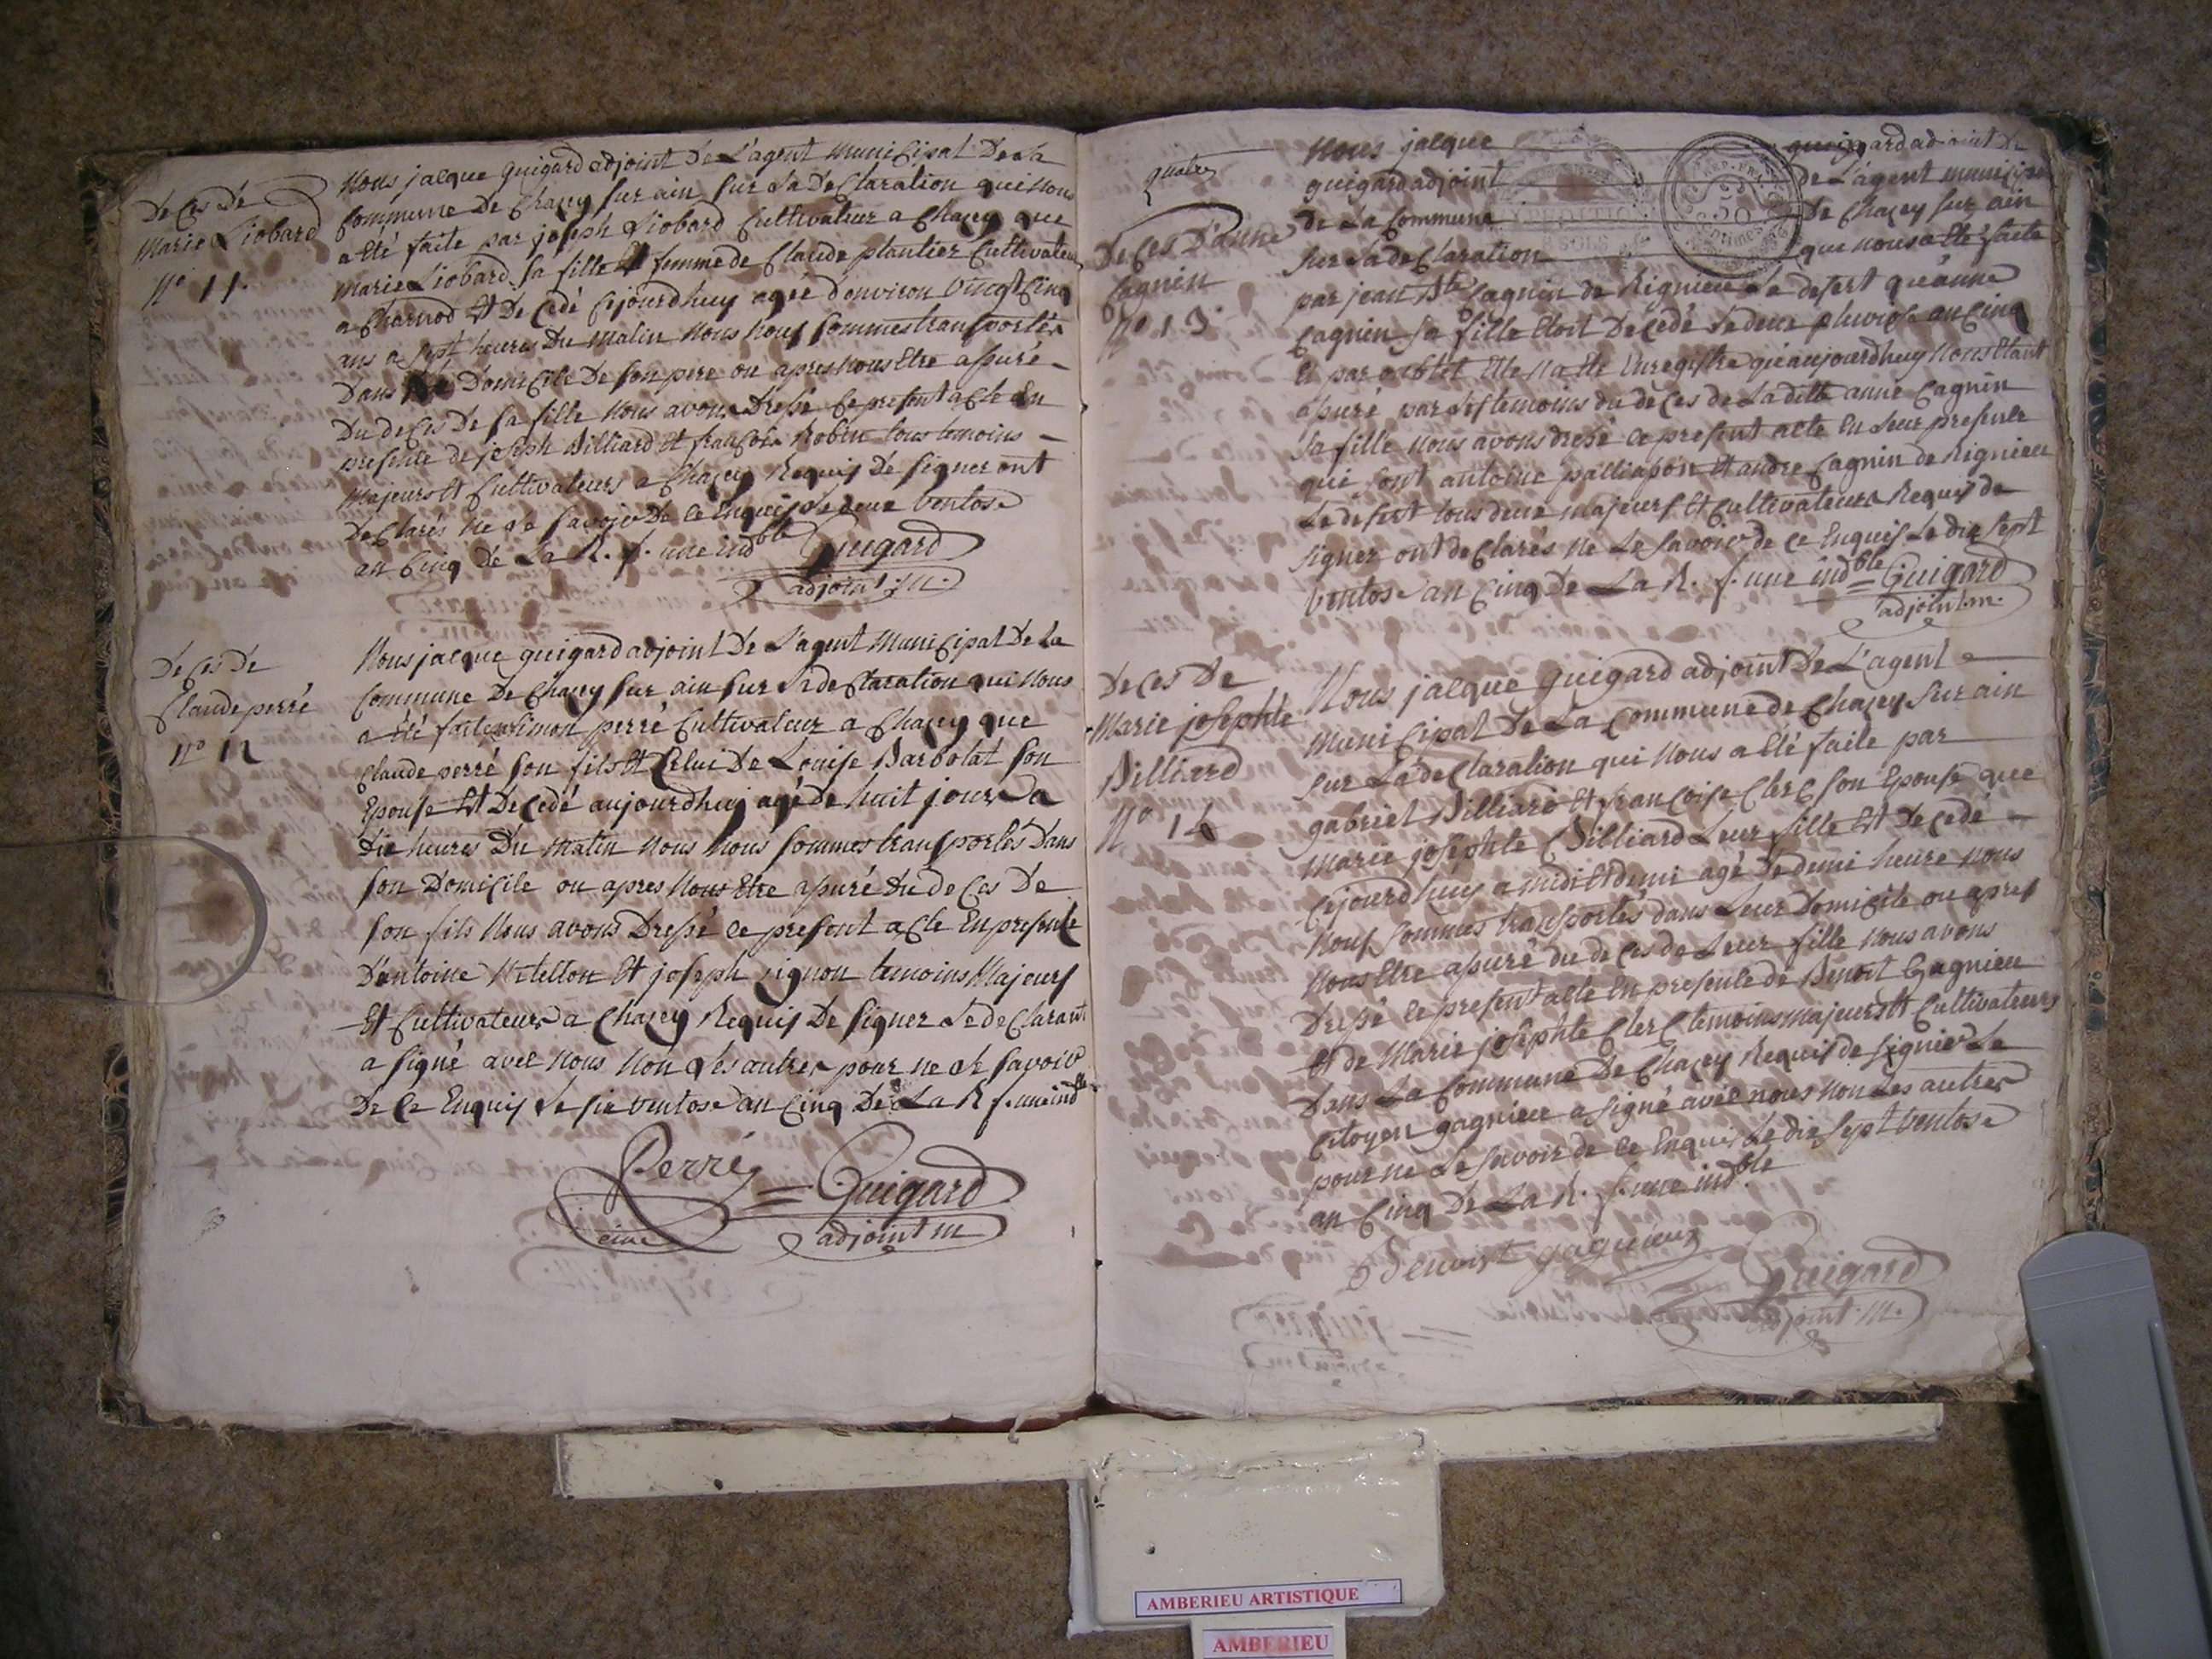 Deces de
Marie Liobard
N° 11.
Nous jacque guigard adjoint De L'agent Municipal De la
Commune De Chazey sur ain sur La De Claration qui nous
a Eté faite par joseph Liobard Cultivateur a Chazey que
marie Liobard sa fille Et femme de Claude plantier Cultivateur
a Charnod Et De Cedé Cejourdhuy agée d'environ Vingt Cinq
ans a sept heures Du Matin Nous Nous sommes transportés
Dans Domicile De son pere ou apres nous Etre assuré
Du deces De sa fille Nous avons Dressé Ce present acte En
presence de joseph Billiard Et francois Robin tous temoins
Majeurs Et Cultivateurs a Chazey Requis De signer ont
De Clarés ne le savoir De Ce Enquis Le deux Ventose
an Cinq de La R. f. une ind ble Guigard
adjoint m.
Deces De
Claude perré
N° 12
Nous jacque guigard adjoint De L'agent Municipal De La
Commune De Chazey sur ain sur La de Claration qui Nous
a été faite simon perré Cultivateur a Chazey que
Claude perré son fils Et Celui De Louise Barbolat son
Epouse Et De Cedé aujourdhuy agé de huit jours a
Dix heures Du Matin Nous Nous sommes transportés Dans
son Domicile ou apres Nous Etre assuré Du de Ces De
son fils Nous avons Dressé Ce present acte En presence
D'antoine Et joseph temoins Majeurs
Et Cultivateurs a Chazey Requis De signer Le de Clarant
a signé avec Nous Non Les autres pour ne le savoir
De Ce Enquis Le six ventose an Cinq De La R f. une ind ble
Perré = Guigard
adjoint m
quatre
De Ces D'anne
Cagnin
N° 13
Nous jacque guigard adjoint De
guigard adjoint De L'agent municipal
de La Commune De Chazey sur ain
sur La de Claration que nous a Eté faite
par jean Bte Cagnin de Rignieu Le desert qu'anne
Cagnin sa fille Etoit De Cedé Le deux pluviose an Cinq
Et par oublit Elle na Eté Enregistré qu'aujourdhuy Nous Etant
assuré par Les temoins du deces de La ditte anne Cagnin
sa fille Nous avons dressé Ce present acte En Leur presence
qui sont antoine Et andre Cagnin de Rignieu
Le desert tous deux majeurs Et Cultivateurs Requis de
signer ont de Clarés ne Le savoir de Ce Enquis Le dix sept
Ventose an Cinq De La R. f. une ind ble = Guigard
adjoint m.
De Ces De
Marie josephte
Billiard
N° 14
Nous jacque guigard adjoint De L'agent
Municipal De La Commune de Chazey sur ain
sur La de Claration qui Nous a Eté faite par
gabriel Billiard Et francoise Clerc son Epouse que
Marie josephte Billiard Leur fille Et De Cedé
Cejourdhuy a midi Et demi agé De demi heure nous
Nous sommes transportés dans Leur Domicile ou apres
Nous Etre assuré du de Ces de Leur fille Nous avons
Dressé Ce present acte En presence de Benoit Gagnieu
Et de Marie josephte Clerc temoins majeurs Et Cultivateurs
Dans La Commune De Chazey Requis de signer Le
Citoyen gagnieu a signé avec nous non Les autres
pour ne Le savoir de Ce Enquis Le dix sept Ventose
an Cinq De La R. f. une ind ble
Benoist gagnieux
Guigard
adjoint m.
AMBERIEU ARTISTIQUE
AMBERIEU